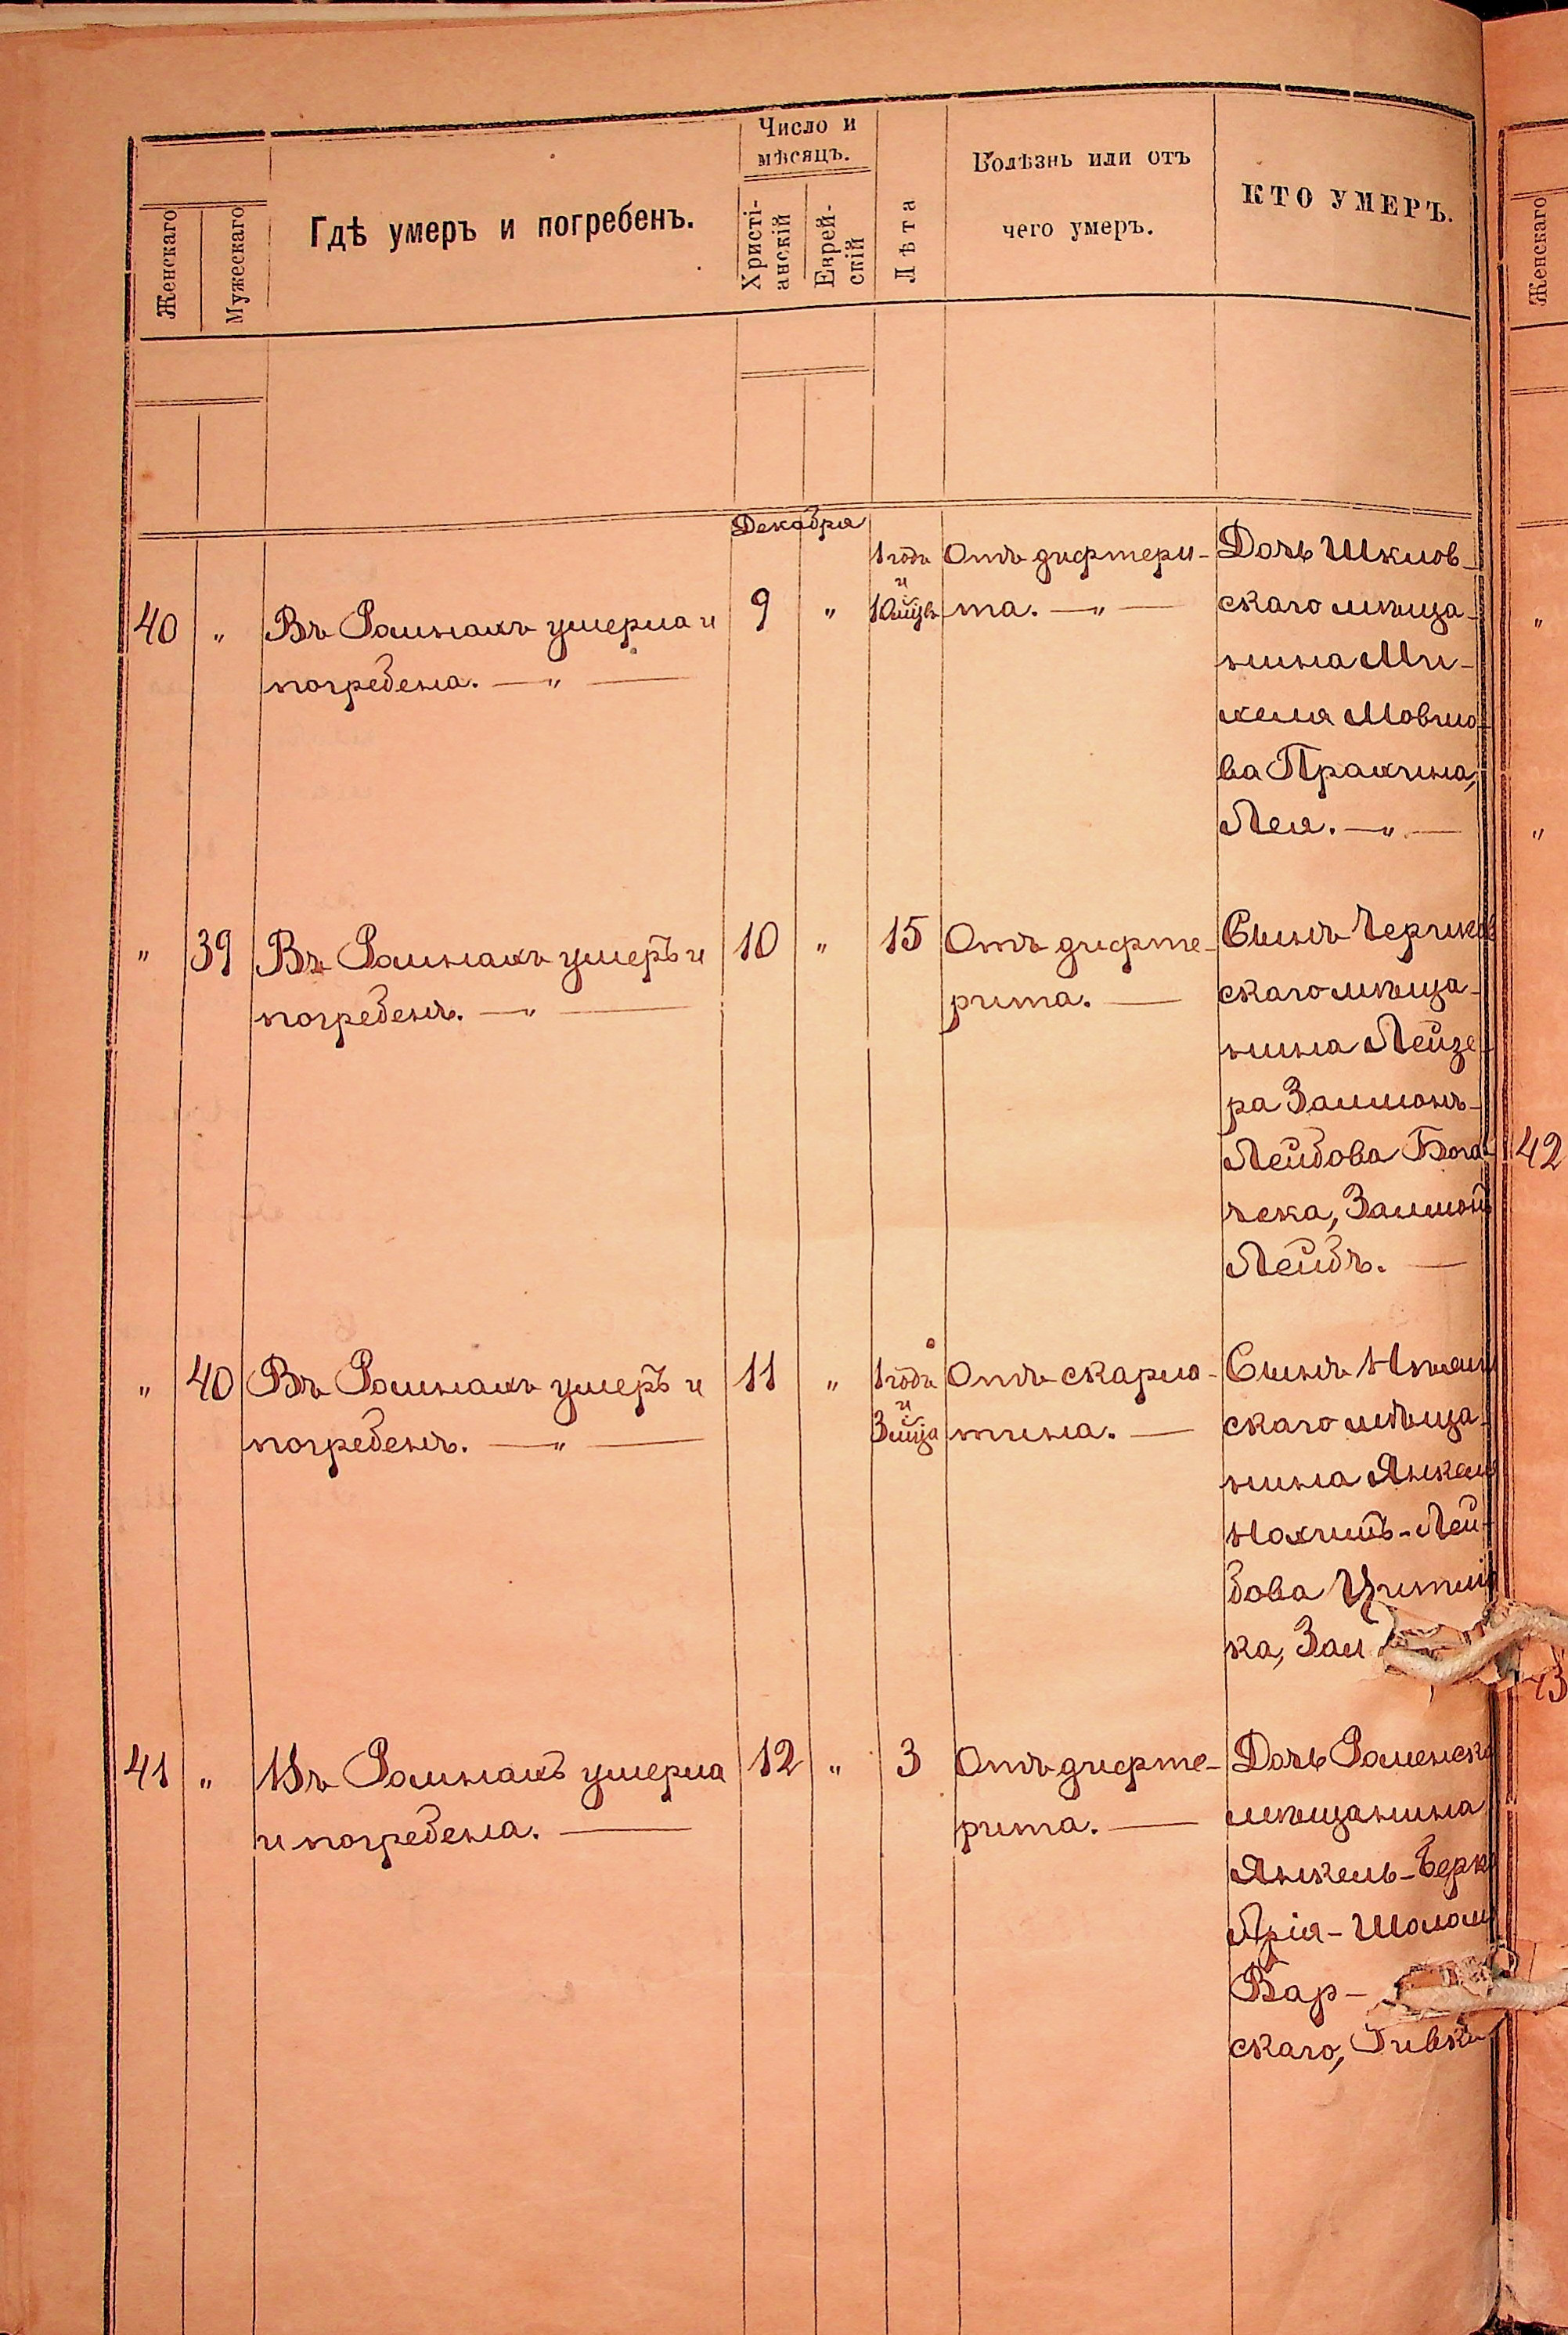 Женскаго
Мужескаго
Гдѣ умеръ и погребенъ.
Число и
мѣсяцъ.
Христі-
анскій
Еврей-
скій
Лѣта
Болѣзнь или отъ
чего умеръ.
КТО УМЕРЪ.
Женскаго
Декабря
40 " Въ Ромнахъ умерла и
погребена. — " —
9 "
1 годъ
и
10 м-цъ
Отъ дифтери-
та. — " —
Дочь Шклов-
скаго мѣща-
нина Ми-
хеля Мовшо-
ва Прахина,
Лея. — " —
" 39 Въ Ромнахъ умеръ и
погребенъ. — " —
10 " 15
Отъ дифте-
рита. —
Сынъ Чериков
скаго мѣща-
нина Лейзе-
ра Залмонъ-
Лейбова
чека, Залмонъ
Лейбъ. —
" 40 Въ Ромнахъ умеръ и
погребенъ. — " —
11 "
1 годъ
и
3 м-ца
Отъ скарла-
тина. —
Сынъ
скаго мѣща-
нина Янкеля
Нохимъ-Лей-
бова
ка,
41 " Въ Ромнахъ умерла
и погребена. —
12 " 3
Отъ дифте-
рита. —
Дочь Роменска
мѣщанина
Янкель-Берка
Арія-Шолом
Вар-
скаго, Ривка
"
"
42
43